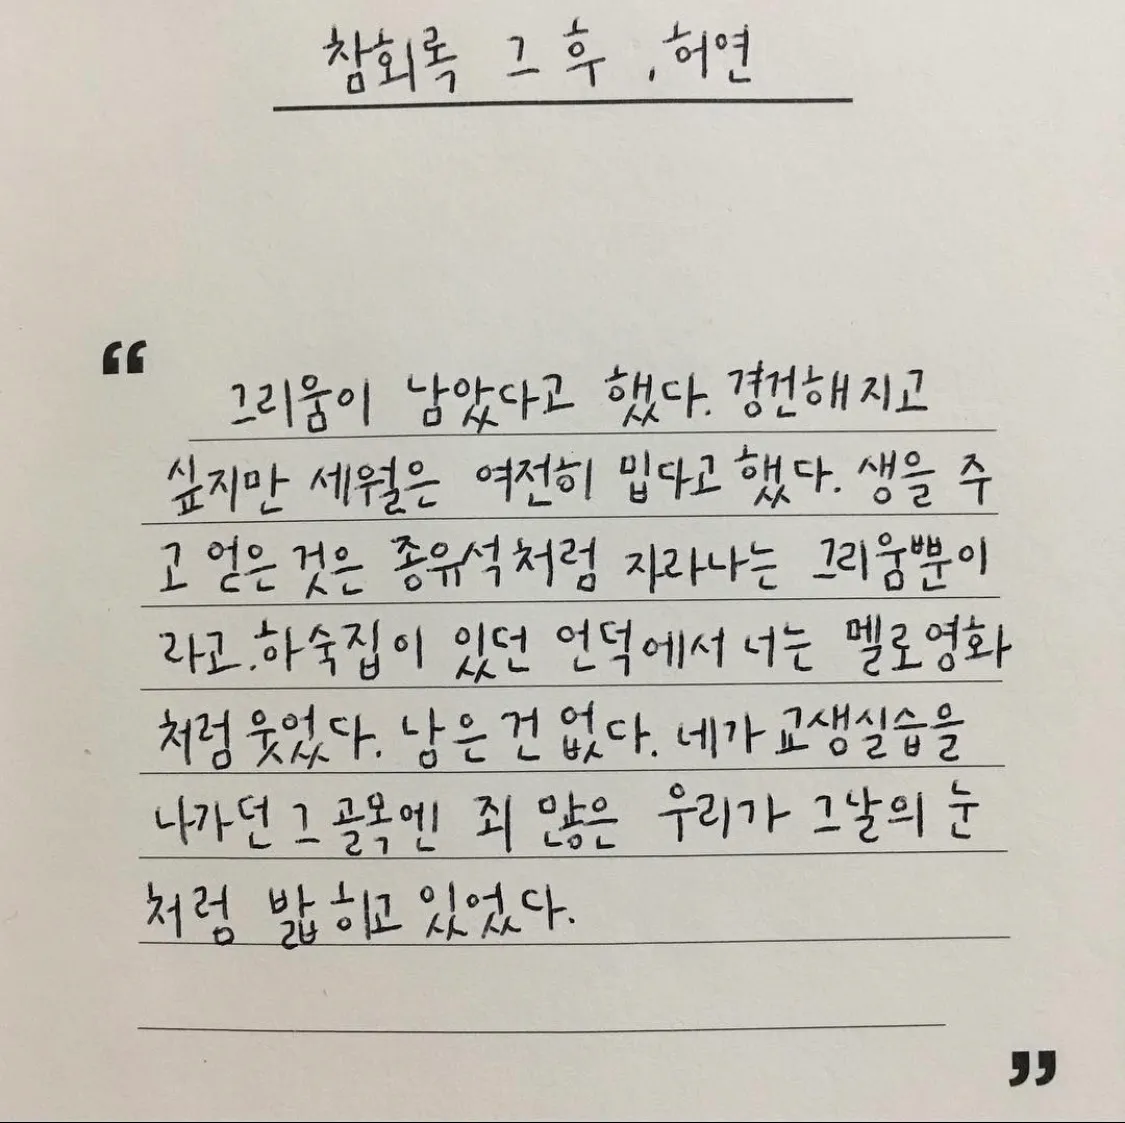 참회록 그 후 , 허연
“
그리움이 남았다고 했다. 경건해지고
싶지만 세월은 여전히 밉다고 했다. 생을 주
고 얻은 것은 종유석처럼 자라나는 그리움뿐이
라고. 하숙집이 있던 언덕에서 너는 멜로영화
처럼 웃었다. 남은 건 없다. 네가 교생실습을
나가던 그 골목엔 죄 많은 우리가 그날의 눈
처럼 밟히고 있었다.
”